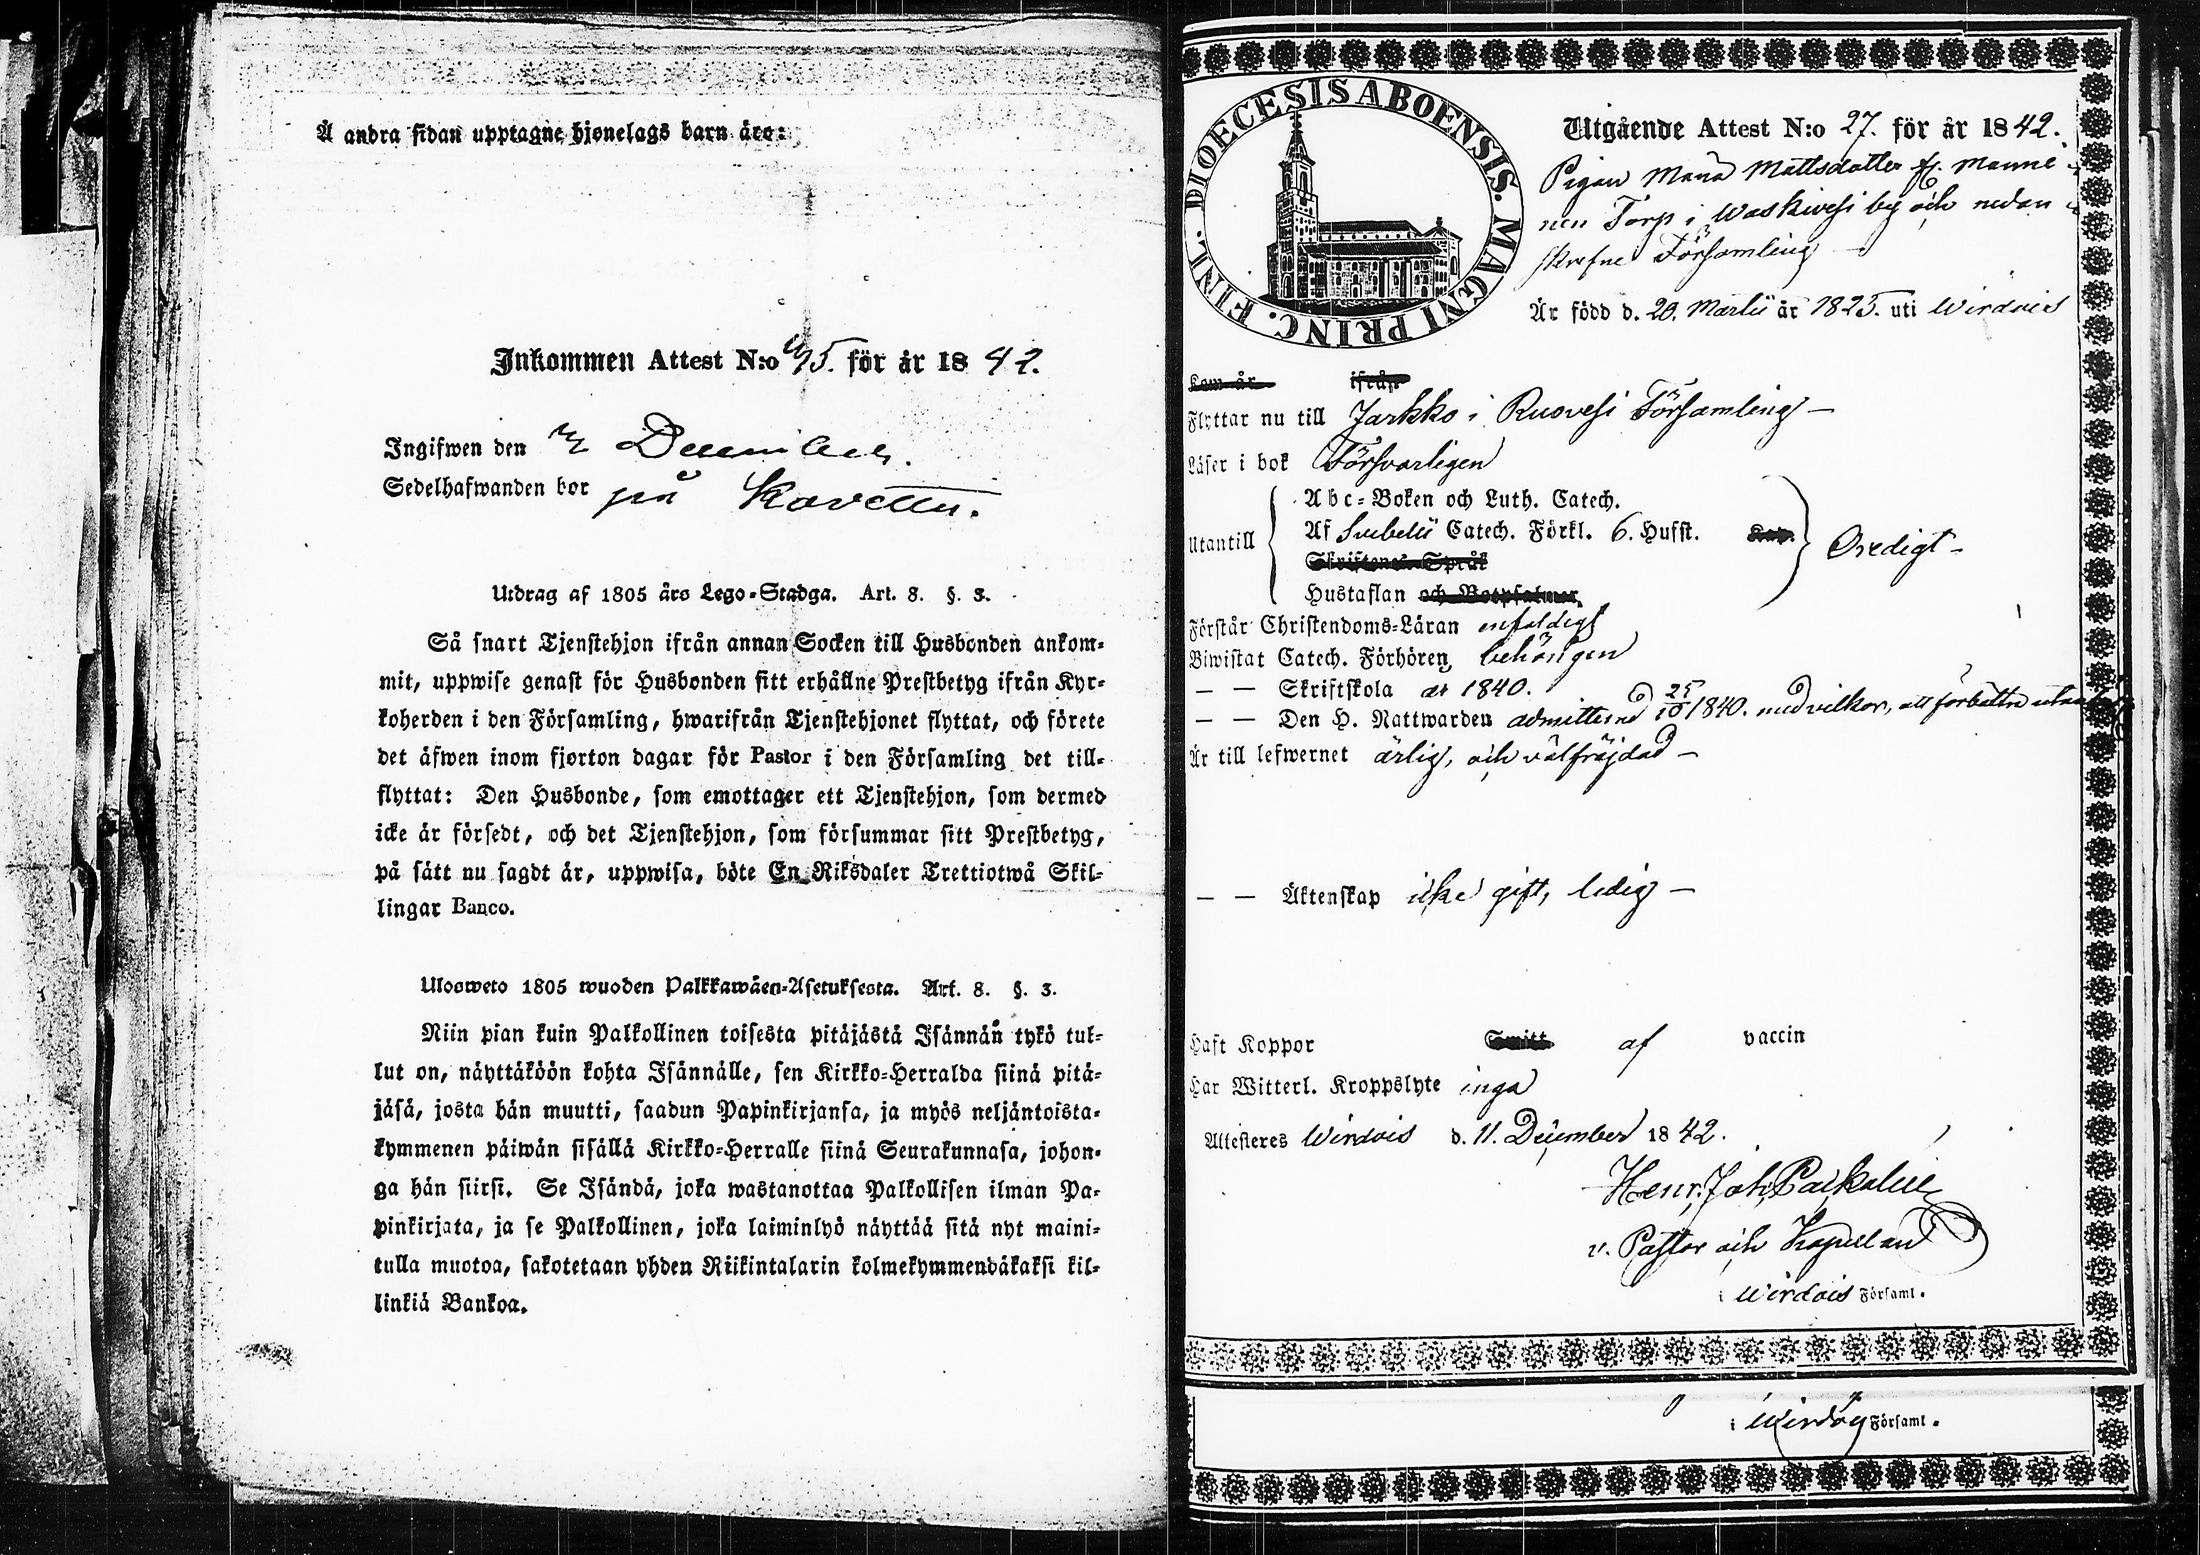 Å andra sidan upptagne hjonelags barn äro:
Inkommen Attest N:o 45. för år 1842.
Ingifwen den December.
Sedelhafwanden bor på
Utdrag af 1805 års Lego-Stadga. Art. 8. §. 3.
Så snart Tjenstehjon ifrån annan Socken till Husbonden ankom-
mit, uppwise genast för Husbonden sitt erhållne Prestbetyg ifrån Kyr-
koherden i den Församling, hwarifrån Tjenstehjonet flyttat, och förete
det äfwen inom fjorton dagar för Pastor i den Församling det till-
flyttat: Den Husbonde, som emottager ett Tjenstehjon, som dermed
icke är försedt, och det Tjenstehjon, som försummar sitt Prestbetyg,
på sätt nu sagdt är, uppwisa, böte En Riksdaler Trettiotwå Skil-
lingar Banco.
Ulosweto 1805 wuoden Palkkawäen-Asetuksesta. Art. 8. §. 3.
Niin pian kuin Palkollinen toisesta pitäjästä Isännän tykö tul-
lut on, näyttäköön kohta Isännälle, sen Kirkko-Herralda siinä pitä-
jäsä, josta hän muutti, saadun Papinkirjansa, ja myös neljäntoista-
kymmenen päiwän sisällä Kirkko-Herralle siinä Seurakunnasa, johon-
ga hän siirsi. Se Isändä, joka wastanottaa Palkollisen ilman Pa-
pinkirjata, ja se Palkollinen, joka laiminlyö näyttää sitä nyt maini-
tulla muotoa, sakotetaan yhden Riikintalarin kolmekymmendäkaksi kil-
linkiä Bankoa.
DIOECESIS ABOENSIS. MAGNI PRINC. FINL.
Utgående Attest N:o 27. för år 1842.
Pigan Maria Mattsdotter fr. Manni-
nen Torp i Waskivesi by och nedan-
skrefne Församling
Är född d. 20. Martii år 1825. uti Wirdois
Kom år ifrån
Flyttar nu till Jarkko i Ruovesi Församling
Läser i bok Försvarligen
Abc-Boken och Luth. Catech.
Utantill Af Svebelii Catech. Förkl. 6. Hufst. Kap. Oredigt
Skriftenes Språk
Hustaflan och Botpsalmer,
Förstår Christendoms-Läran enfaldigt
Biwistat Catech. Förhören behörigen
— — Skriftskola år 1840.
— — Den H. Nattwarden admitterad d 25/10 1840. med vilkor, att förbättra
Är till lefwernet ärlig, och välfräjdad
— — Äktenskap icke gift, ledig
Haft Koppor Smitt af vaccin
Har Witterl. Kroppslyte inga
Attesteres Wirdois d. 11. December 1842.
Henr. Joh.
v. Pastor och Kapellan
i Wirdois Församl.
i Församl.